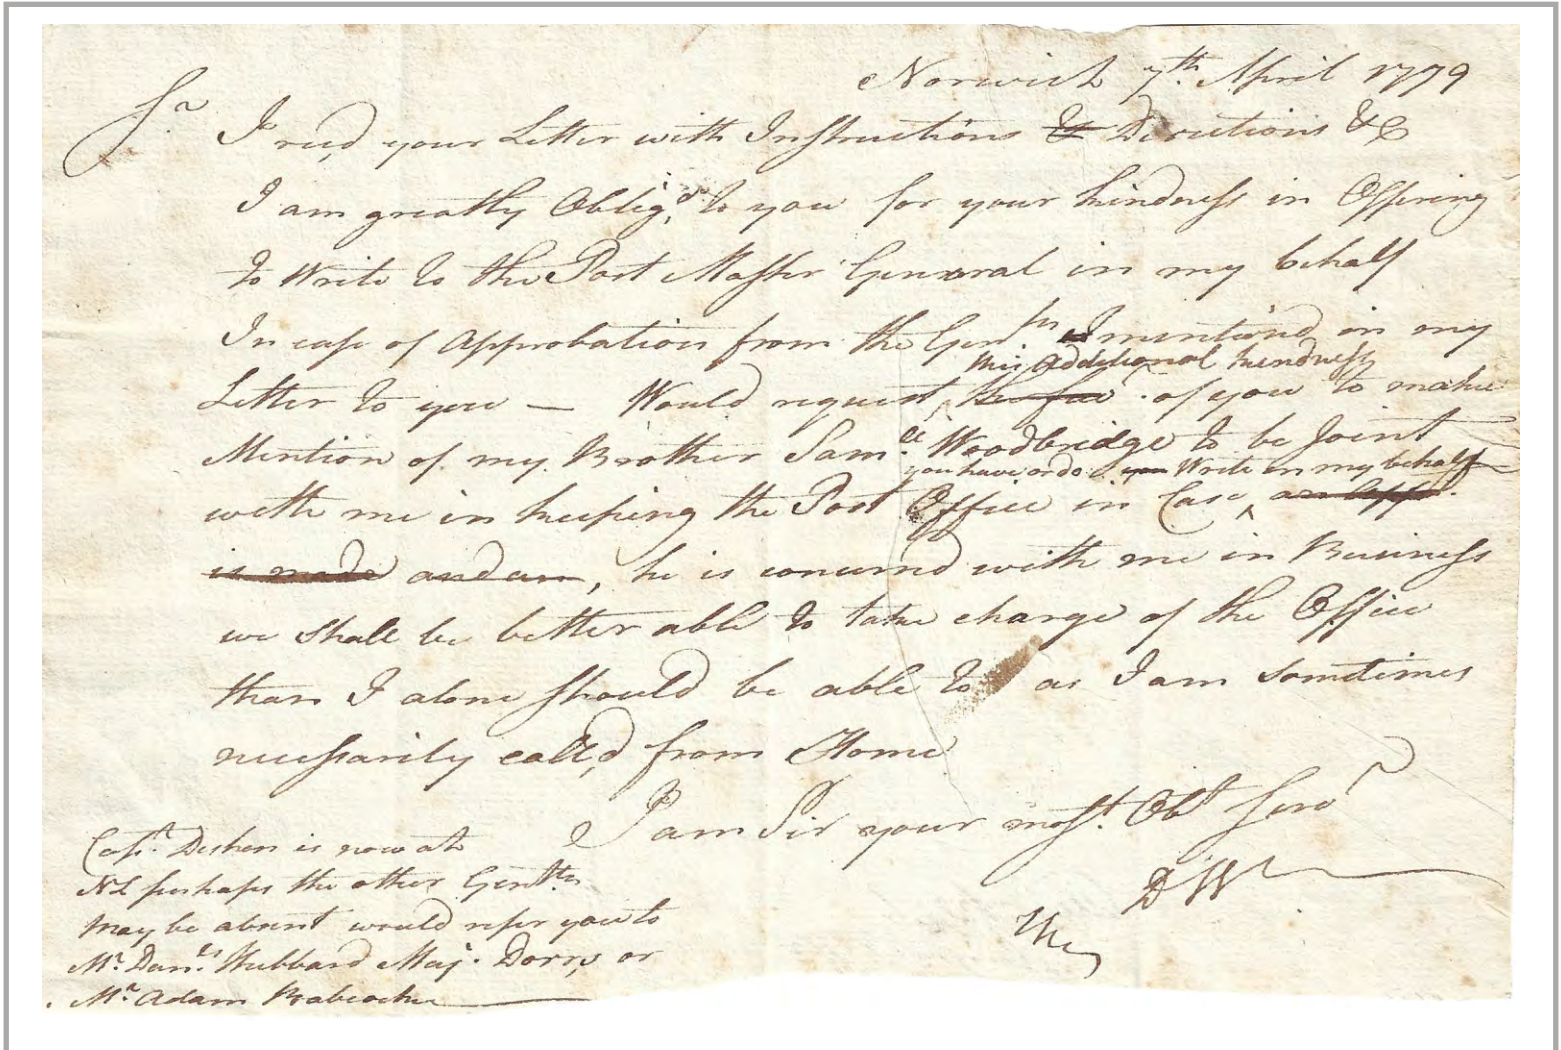 Norwich 7th. April 1779
Sr. I recd, your Letter with Instructions & Directions &C
I am greatly Oblig,d to you for your kindness in Offering
to Write to the Post Master General in my behalf
In case of Approbation from the Gen. tn I mention'd in my
this additional kindness
Letter to you — Would request of you to make
Mention of my Brother Samll. Woodbridge to be Joint
you have or do you Write in my behalf
with me in keeping the Post Office in Case an appo.
is made and am, he is concernd with me in Business
we shall be better able to take charge of the Office
than I alone should be able to as I am sometimes
necessarily call,d from Home
I am Sir your most. Obt Serv
DW
Capt. Deshon is now at
NL perhaps the other Gentln
may be absent would refer you to
Mr. Danll. Hubbard Maj. Dorr, or
Mr. Adam Babcocke